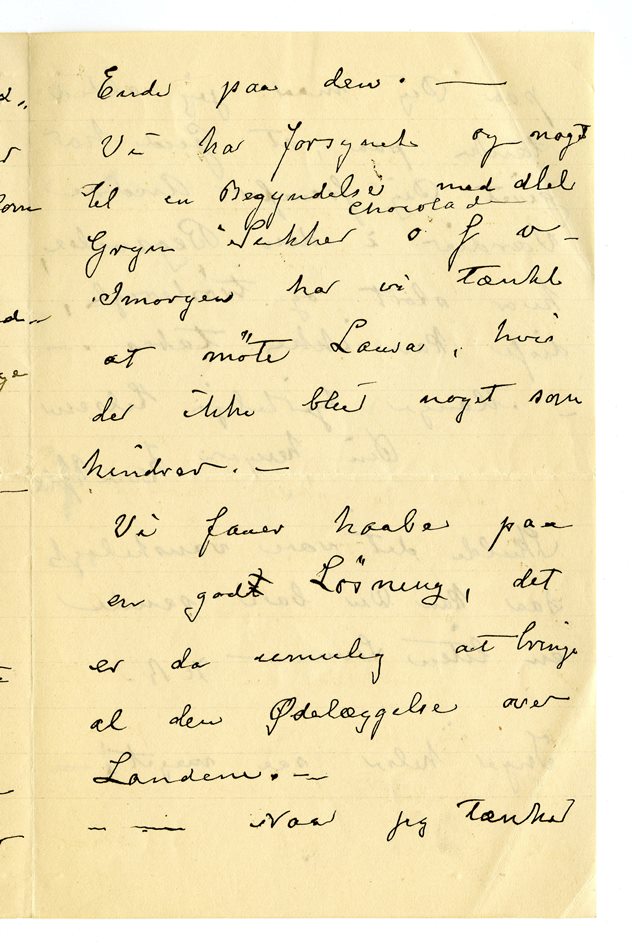 Ende paa den. —
Vi har forsynet og noget
til en Begyndelse med dlel
Chocolade
Gryn Sukker o f v –
Imorgen har vi tænkt
at möte Laura, hvis
der ikke blir noget som
hindrer. —
Vi faaer haabe paa
en god Lösning, det
er da umulig at bringe
al den Ødelæggelse over
Landene. —
— — Naar jeg tænker